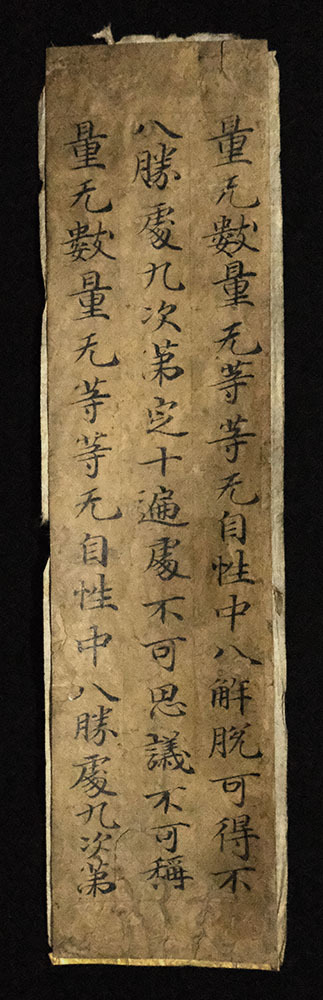 量无數量无等等无自性中八解脫可得不
八勝處九次第定十遍處不可思議不可稱
量无數量无等等无自性中八勝處九次第